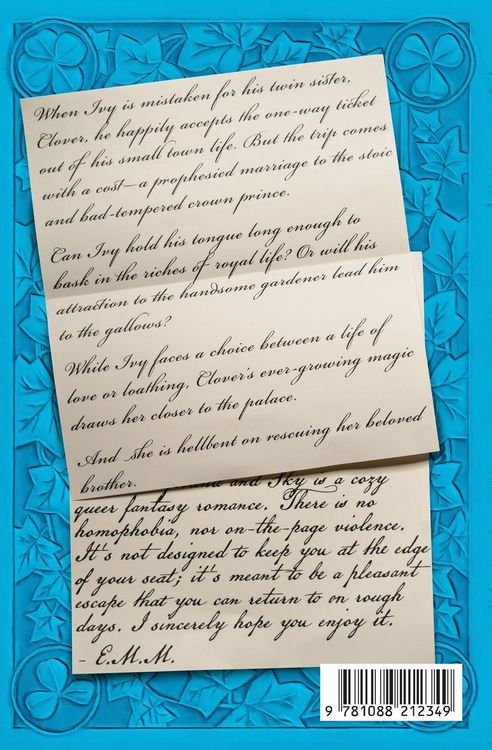 When Ivy is mistaken for his twin sister,
Clover, he happily accepts the one-way ticket
out of his small town life. But the trip comes
with a cost—a prophesied marriage to the stoic
and bad-tempered crown prince.
Can Ivy hold his tongue long enough to
bask in the riches of royal life? Or will his
attraction to the handsome gardener lead him
to the gallows?
While Ivy faces a choice between a life of
love or loathing, Clover's ever-growing magic
draws her closer to the palace.
And she is hellbent on rescuing her beloved
brother.
and Sky is a cozy
queer fantasy romance. There is no
homophobia, nor on-the-page violence.
It's not designed to keep you at the edge
of your seat; it's meant to be a pleasant
escape that you can return to on rough
days. I sincerely hope you enjoy it.
- E.M.M.
9 781088 212349